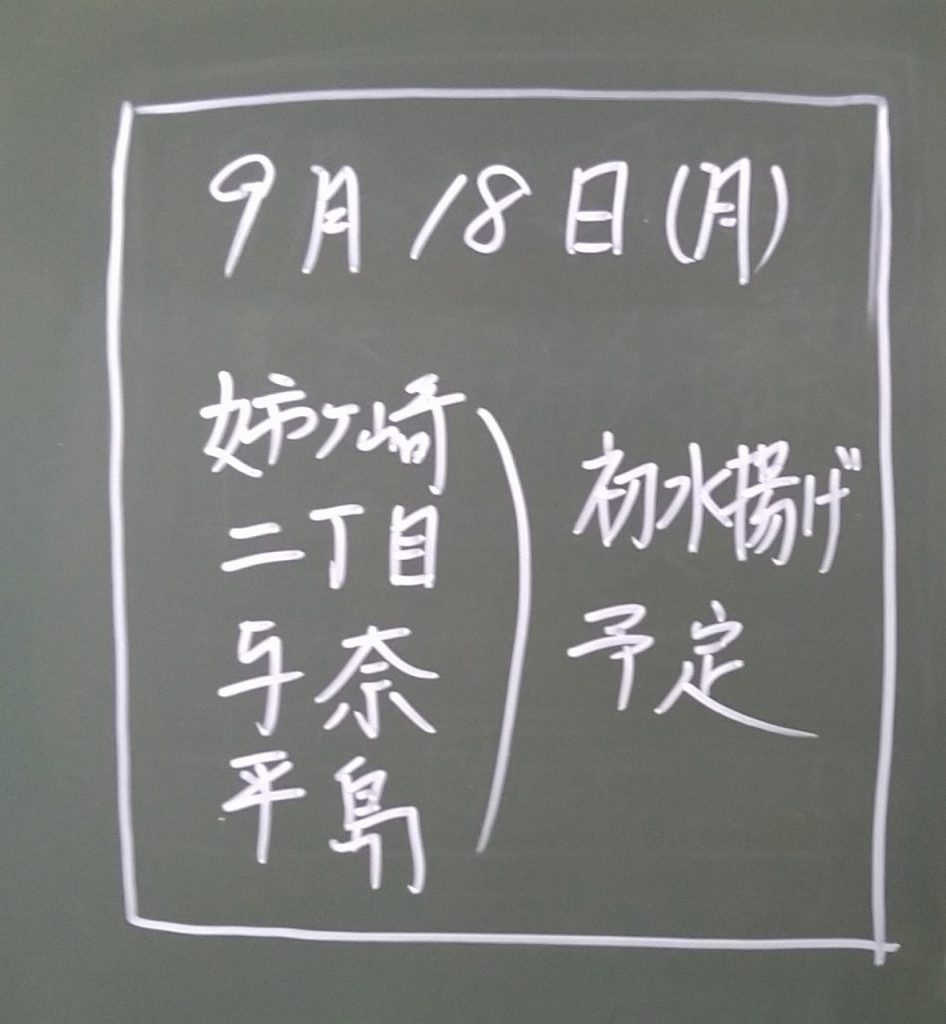 9月18日(月)
姉ヶ崎
二丁目
与奈
平島
初水揚げ
予定